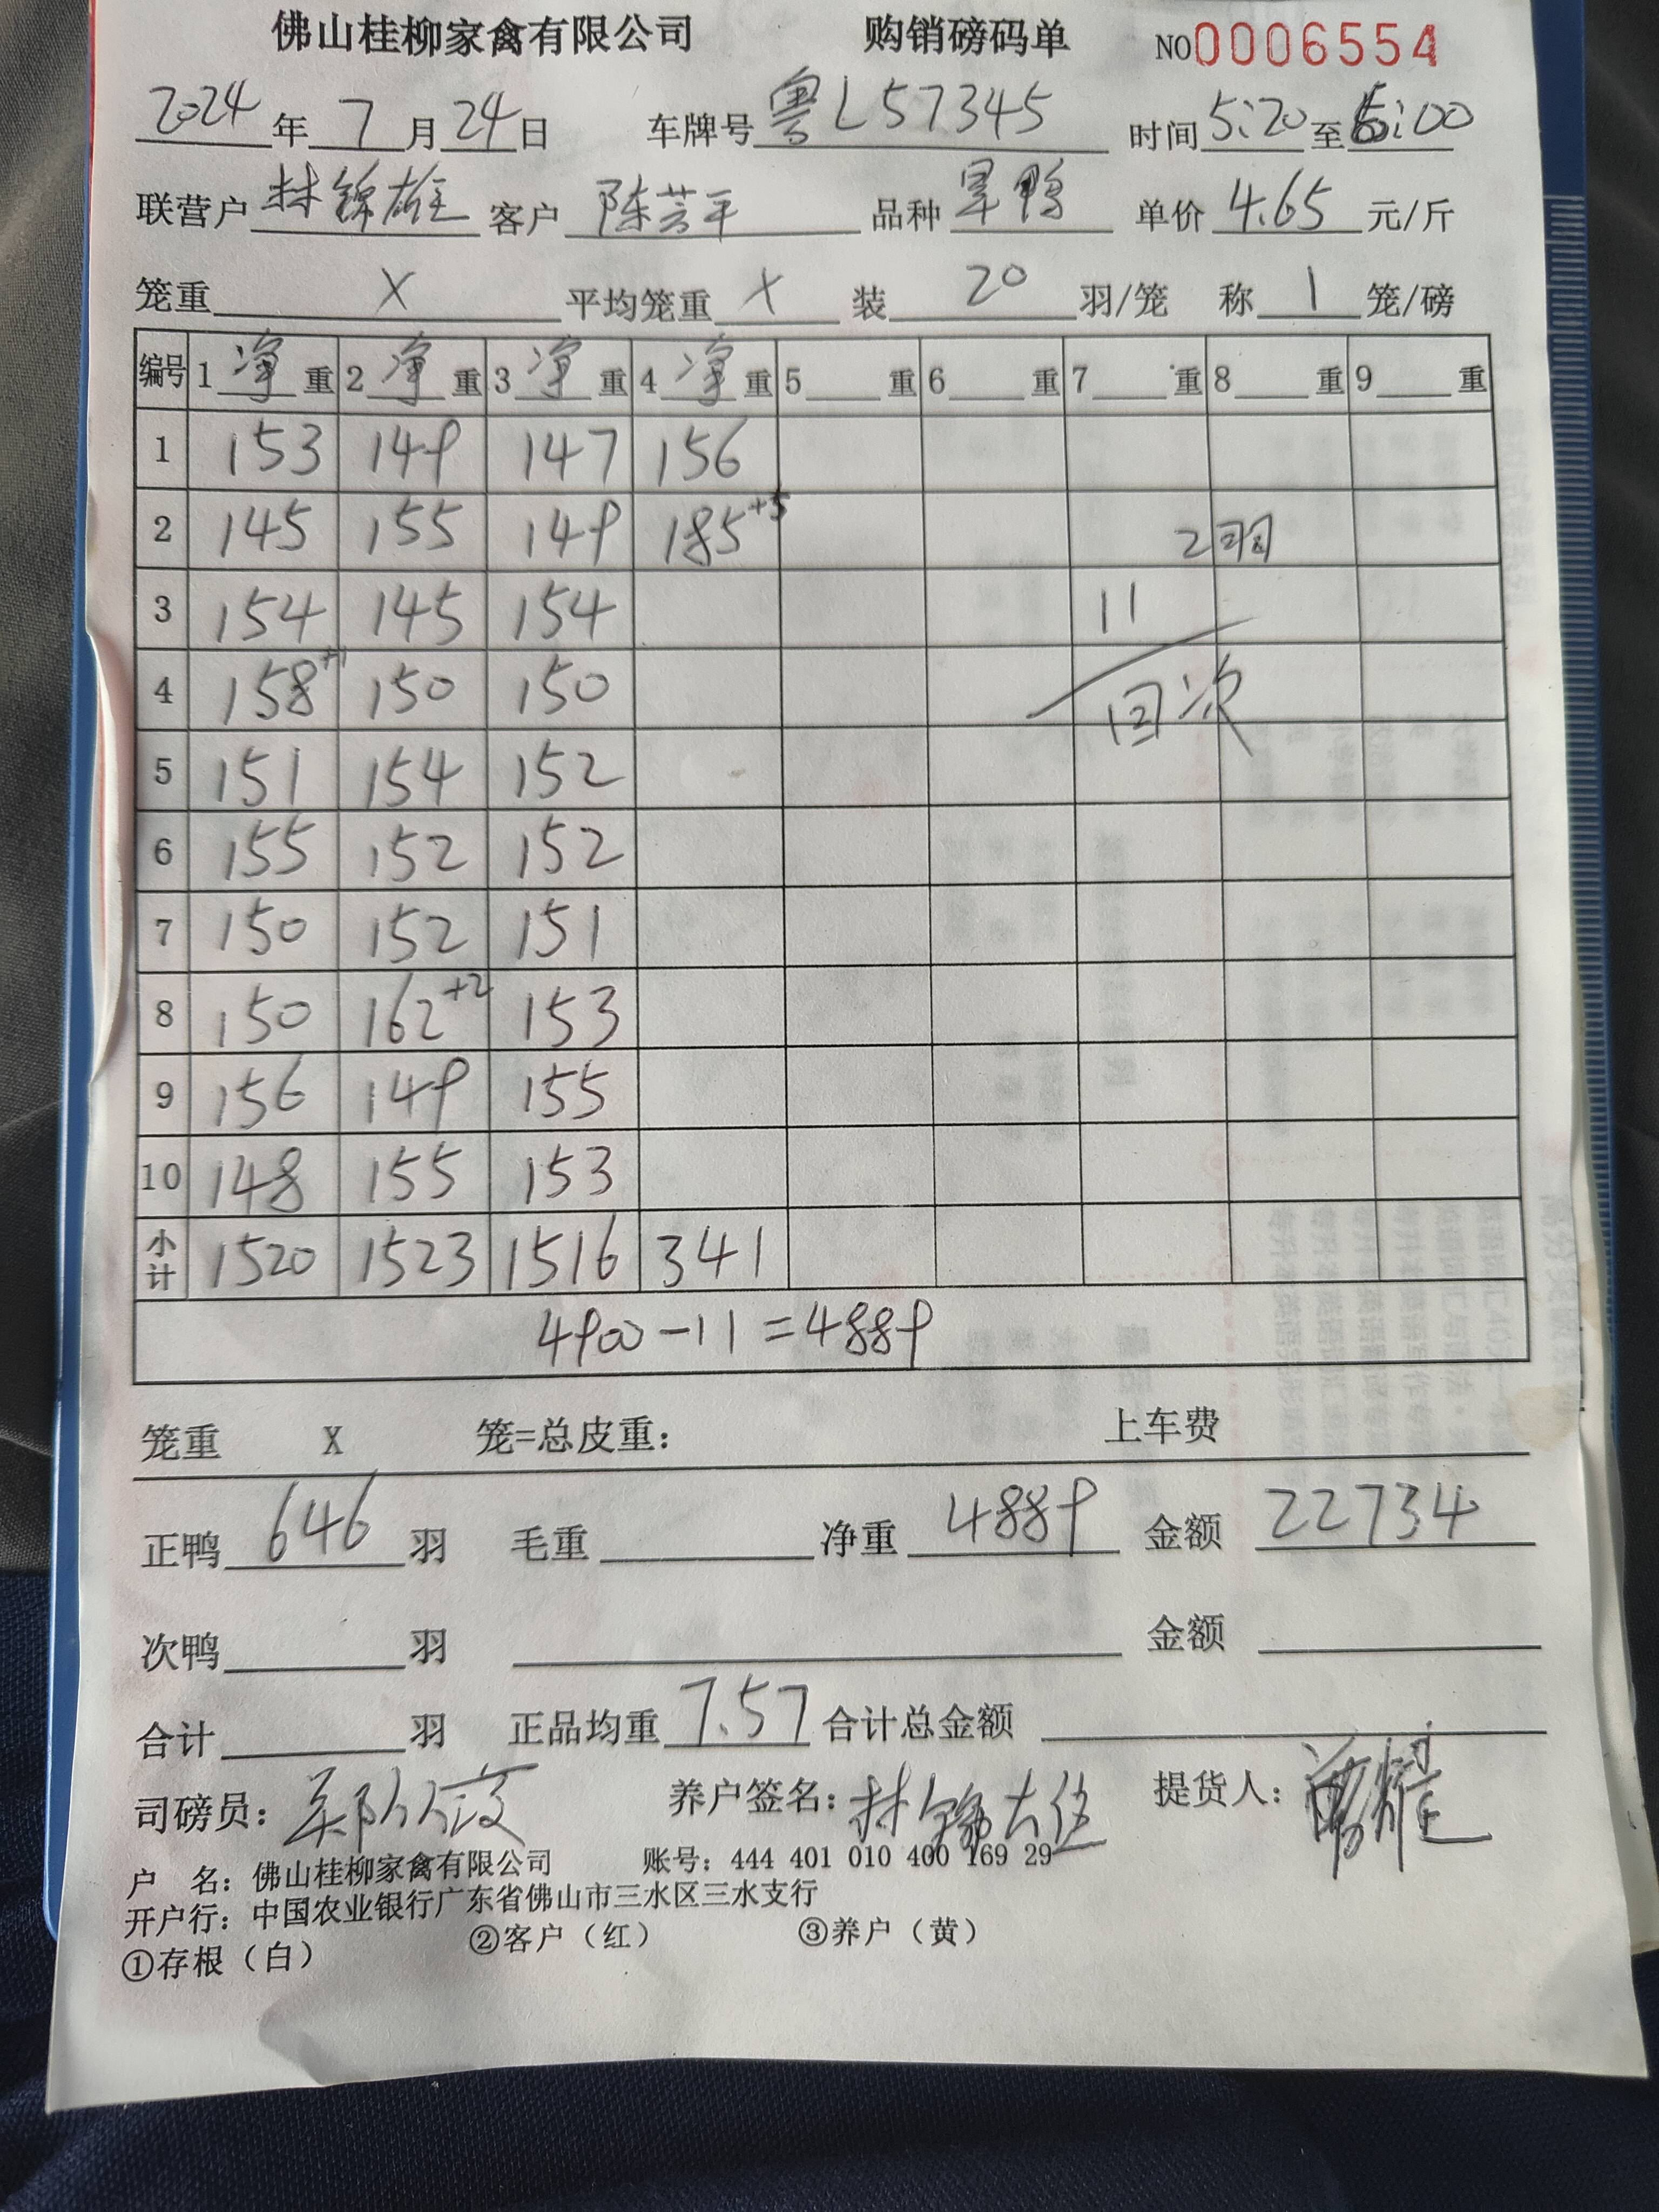 佛山桂柳家禽有限公司 购销磅码单 NO0006554
2024年7月24日 车牌号粤L57345 时间5:20至6:00
联营户林锦雄 客户陈芸平 品种旱鸭 单价4.65元/斤
笼重X 平均笼重X 装20羽/笼 称1笼/磅
编号 1净重 2净重 3净重 4净重 5重 6重 7重 8重 9重
1 153 149 147 156
2 145 155 149 185+5 2羽
3 154 145 154 11
4 158+1 150 150 回次
5 151 154 152
6 155 152 152
7 150 152 151
8 150 162+2 153
9 156 149 155
10 148 155 153
小计 1520 1523 1516 341
4900-11=4889
笼重 X 笼=总皮重: 上车费
正鸭646羽 毛重 净重4889 金额22734
次鸭 羽 金额
合计 羽 正品均重7.57 合计总金额
司磅员: 养户签名:林锦雄 提货人:
户 名:佛山桂柳家禽有限公司 账号:444 401 010 400 169 29
开户行:中国农业银行广东省佛山市三水区三水支行
①存根(白) ②客户(红) ③养户(黄)